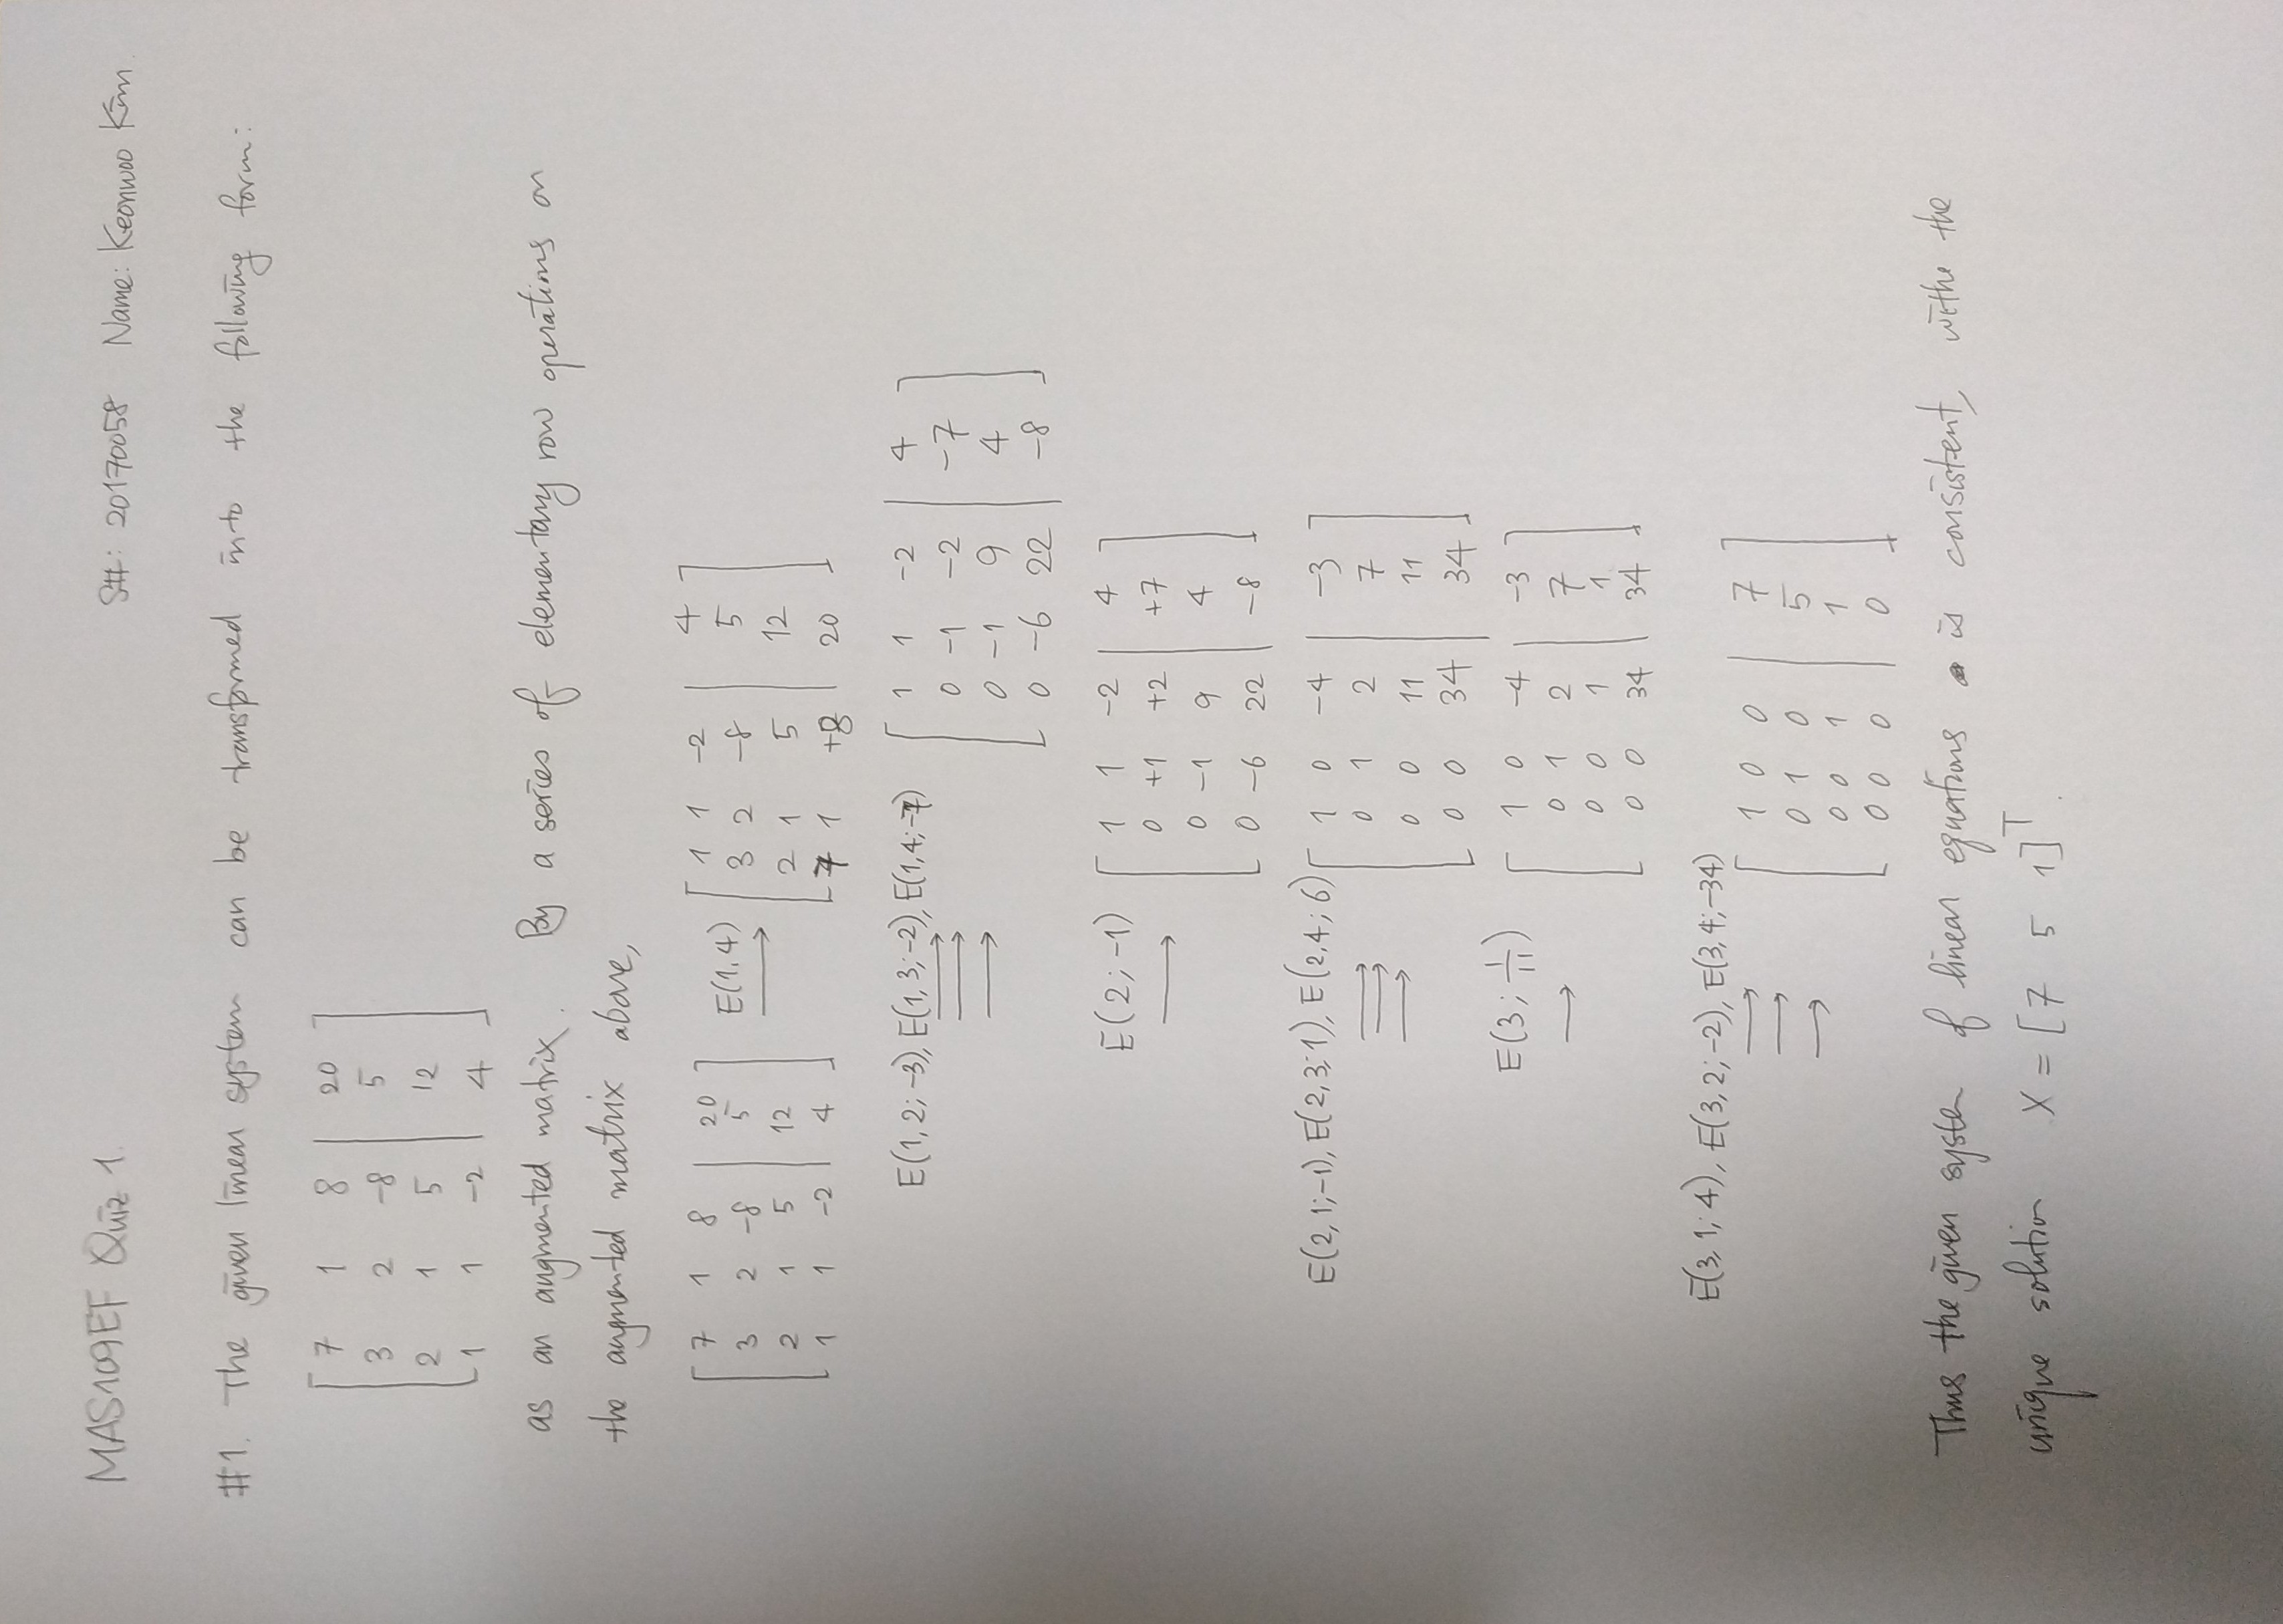 MAS109EF Quiz 1. S#: 20170058 Name: Keonwoo Kim.
#1. The given linear system can be transformed into the following form:
7 1 8 | 20
3 2 -8 | 5
2 1 5 | 12
1 1 -2 | 4
as an augmented matrix. By a series of elementary row operations on
the augmented matrix above,
7 1 8 | 20
3 2 -8 | 5
2 1 5 | 12
1 1 -2 | 4
E(1,4)
→
1 1 -2 | 4
3 2 -8 | 5
2 1 5 | 12
7 1 +8 | 20
E(1,2;-3), E(1,3;-2), E(1,4;-7)
→
→
→
1 1 -2 | 4
0 -1 -2 | -7
0 -1 9 | 4
0 -6 22 | -8
E(2;-1)
→
1 1 -2 | 4
0 +1 +2 | +7
0 -1 9 | 4
0 -6 22 | -8
E(2,1;-1), E(2,3;1), E(2,4;6)
→
→
→
1 0 -4 | -3
0 1 2 | 7
0 0 11 | 11
0 0 34 | 34
E(3; 1/11)
→
1 0 -4 | -3
0 1 2 | 7
0 0 1 | 1
0 0 34 | 34
E(3,1;4), E(3,2;-2), E(3,4;-34)
→
→
→
1 0 0 | 7
0 1 0 | 5
0 0 1 | 1
0 0 0 | 0
Thus the given syste of linear equations is consistent, withe the
unique solution X = [7 5 1]^T.